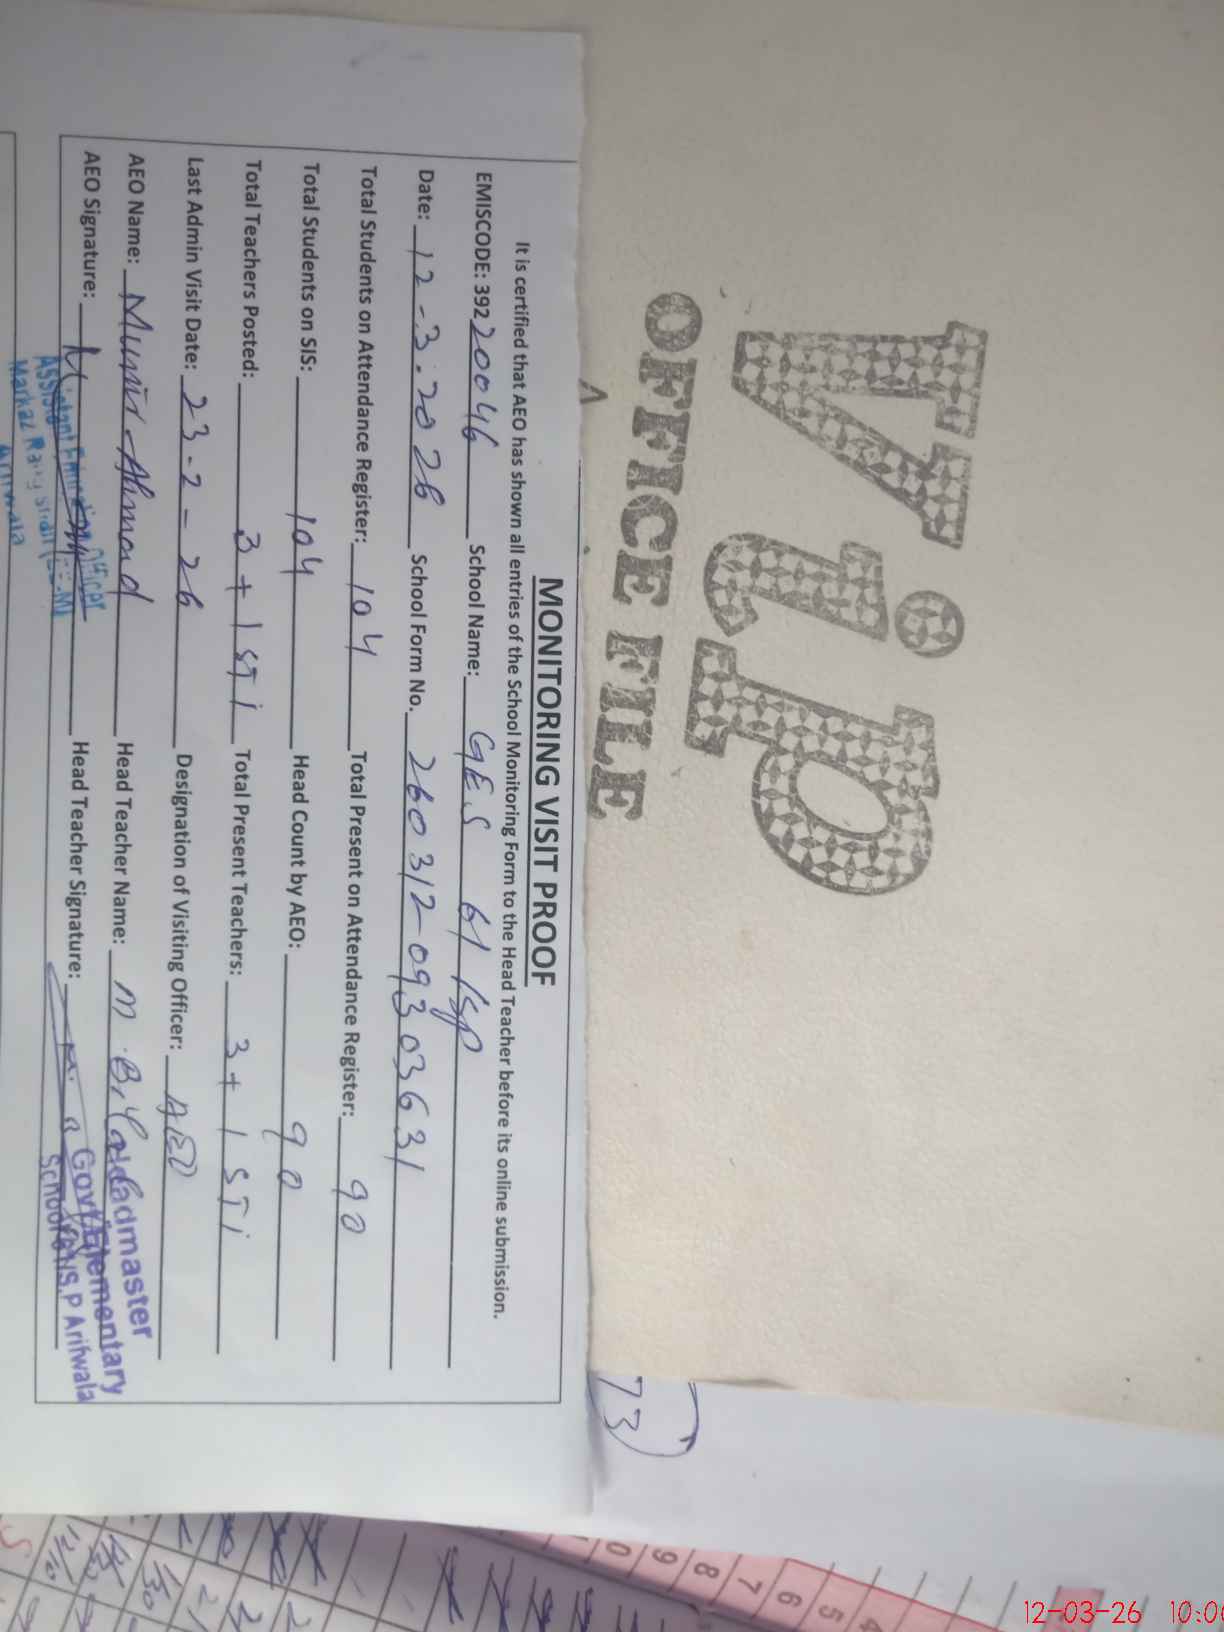 Vip
OFFICE FILE
MONITORING VISIT PROOF
It is certified that AEO has shown all entries of the School Monitoring Form to the Head Teacher before its online submission.
EMISCODE: 39220046 School Name: GES 61/SP
Date: 12-3-2026 School Form No. 260312-09303631
Total Students on Attendance Register: 104 Total Present on Attendance Register: 90
Total Students on SIS: 104 Head Count by AEO: 90
Total Teachers Posted: 3+1 STI Total Present Teachers: 3+1 STI
Last Admin Visit Date: 23-2-26 Designation of Visiting Officer: AEO
AEO Name: Munir Ahmad Head Teacher Name: M. Bilal
AEO Signature: Head Teacher Signature:
Headmaster
Govt. Elementary
School 61/S.P Arifwala
Assistant Education Officer
Markaz
Arifwala
73
0 9 8 7 6 5 4
12-03-26 10:06